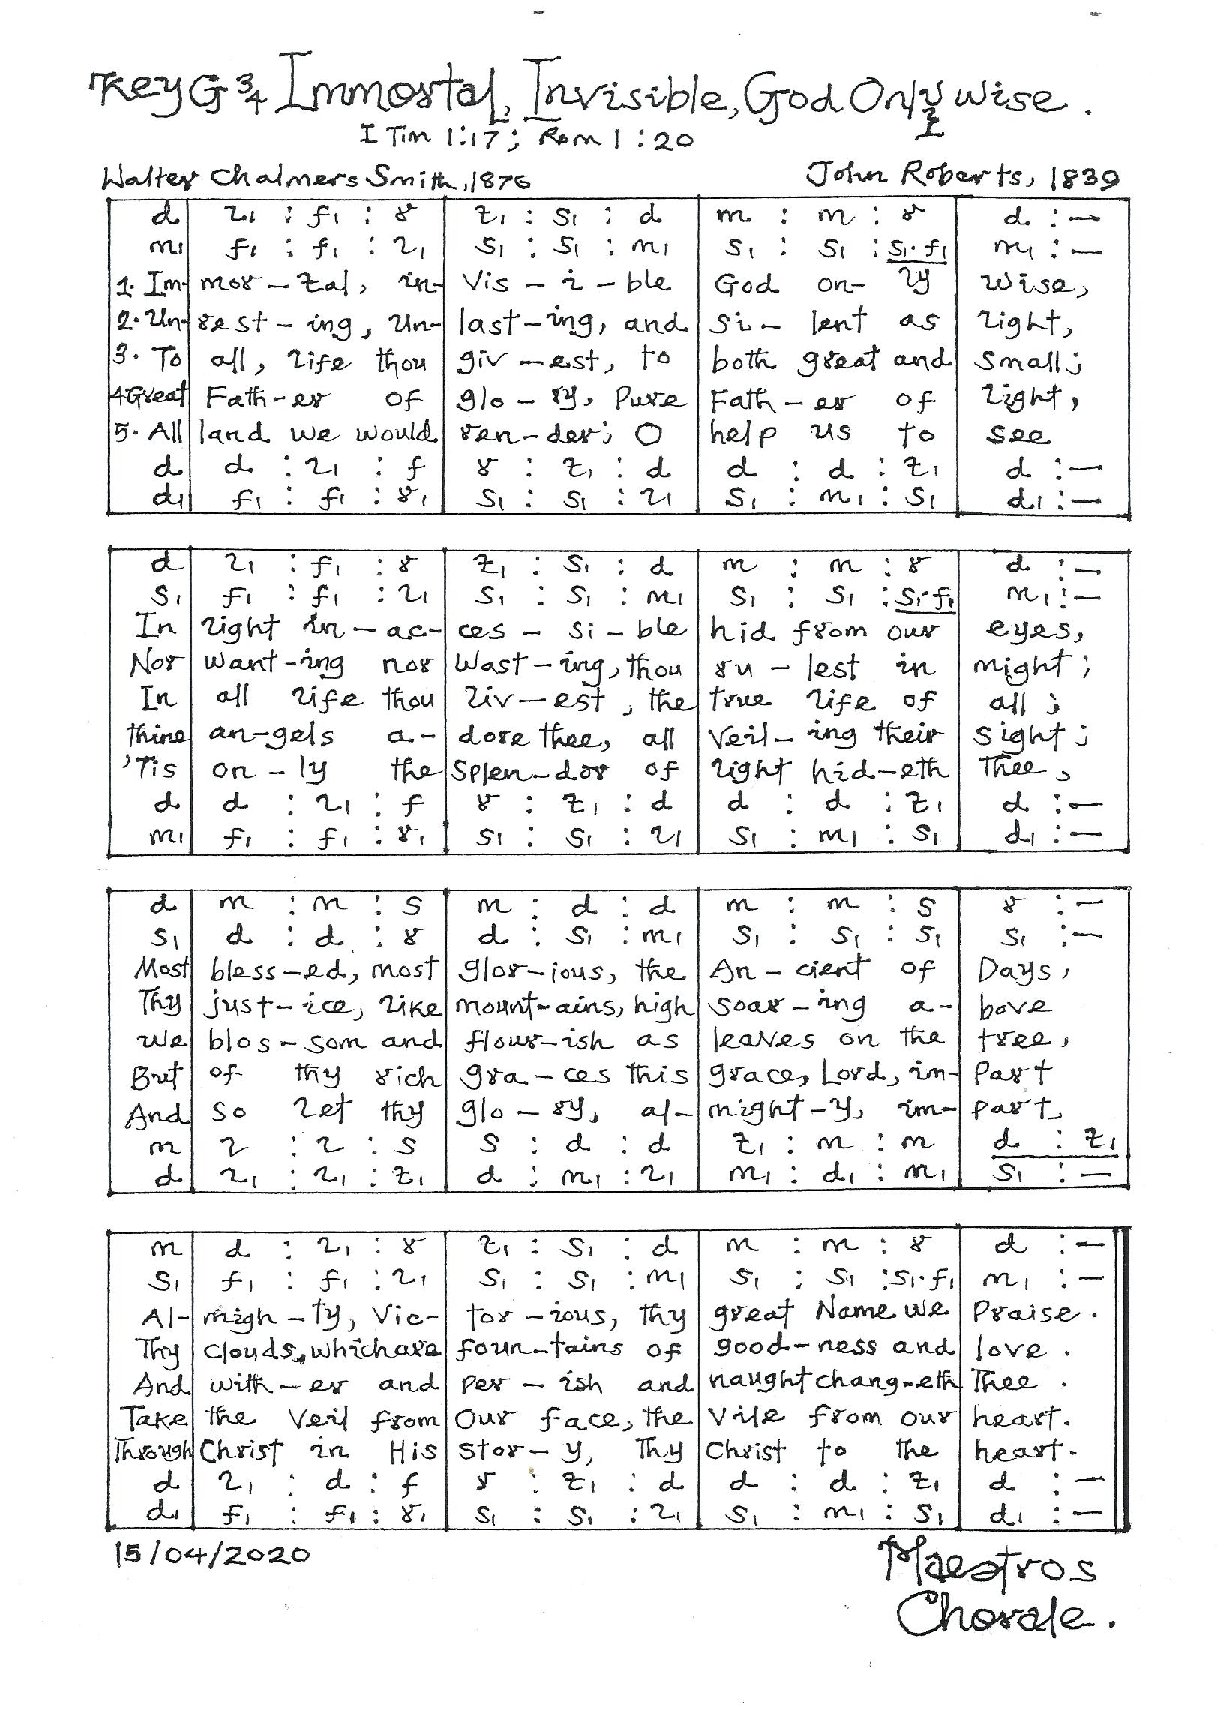 Key G 3/4 Immortal, Invisible, God Only Wise.
I Tim 1:17; Rom 1:20
Walter Chalmers Smith, 1876 John Roberts, 1839
d l₁ : f₁ : r t₁ : s₁ : d m : m : r d : —
m₁ f₁ : f₁ : l₁ s₁ : s₁ : m₁ s₁ : s₁ : s₁.f₁ m₁ : —
1. Im- mor-tal, in- vis-i-ble God on-ly wise,
2. Un- rest-ing, un- last-ing, and si-lent as light,
3. To all, life thou giv-est, to both great and small;
4 Great Fath-er of glo-ry, Pure Fath-er of light,
5. All land we would ren-der; O help us to see
d d : l₁ : f r : t₁ : d d : d : t₁ d : —
d₁ f₁ : f₁ : r₁ s₁ : s₁ : l₁ s₁ : m₁ : s₁ d₁ : —
d l₁ : f₁ : r t₁ : s₁ : d m : m : r d : —
s₁ f₁ : f₁ : l₁ s₁ : s₁ : m₁ s₁ : s₁ : s₁.f₁ m₁ : —
In light in-ac- ces-si-ble hid from our eyes,
Nor want-ing nor wast-ing, thou ru-lest in might;
In all life thou liv-est, the true life of all;
thine an-gels a- dore thee, all veil-ing their sight;
'Tis on-ly the splen-dor of light hid-eth Thee,
d d : l₁ : f r : t₁ : d d : d : t₁ d : —
m₁ f₁ : f₁ : r₁ s₁ : s₁ : l₁ s₁ : m₁ : s₁ d₁ : —
d m : m : s m : d : d m : m : s r : —
s₁ d : d : r d : s₁ : m₁ s₁ : s₁ : s₁ s₁ : —
Most bless-ed, most glor-ious, the An-cient of Days,
Thy just-ice, like mount-ains, high soar-ing a- bove
We blos-som and flour-ish as leaves on the tree,
But of thy rich gra-ces this grace, Lord, im- part
And so let thy glo-ry, al- might-y, im- part,
m l : l : s s : d : d t₁ : m : m d : t₁
d l₁ : l₁ : t₁ d : m₁ : l₁ m₁ : d₁ : m₁ s₁ : —
m d : l₁ : r t₁ : s₁ : d m : m : r d : —
s₁ f₁ : f₁ : l₁ s₁ : s₁ : m₁ s₁ : s₁ : s₁.f₁ m₁ : —
Al- migh-ty, Vic- tor-ious, thy great Name we Praise.
Thy clouds, which are foun-tains of good-ness and love.
And with-er and per-ish and naught chang-eth Thee.
Take the veil from our face, the vile from our heart.
Through Christ in His stor-y, Thy Christ to the heart.
d l₁ : d : f r : t₁ : d d : d : t₁ d : —
d₁ f₁ : f₁ : r₁ s₁ : s₁ : l₁ s₁ : m₁ : s₁ d₁ : —
15/04/2020 Maestros
Chorale.